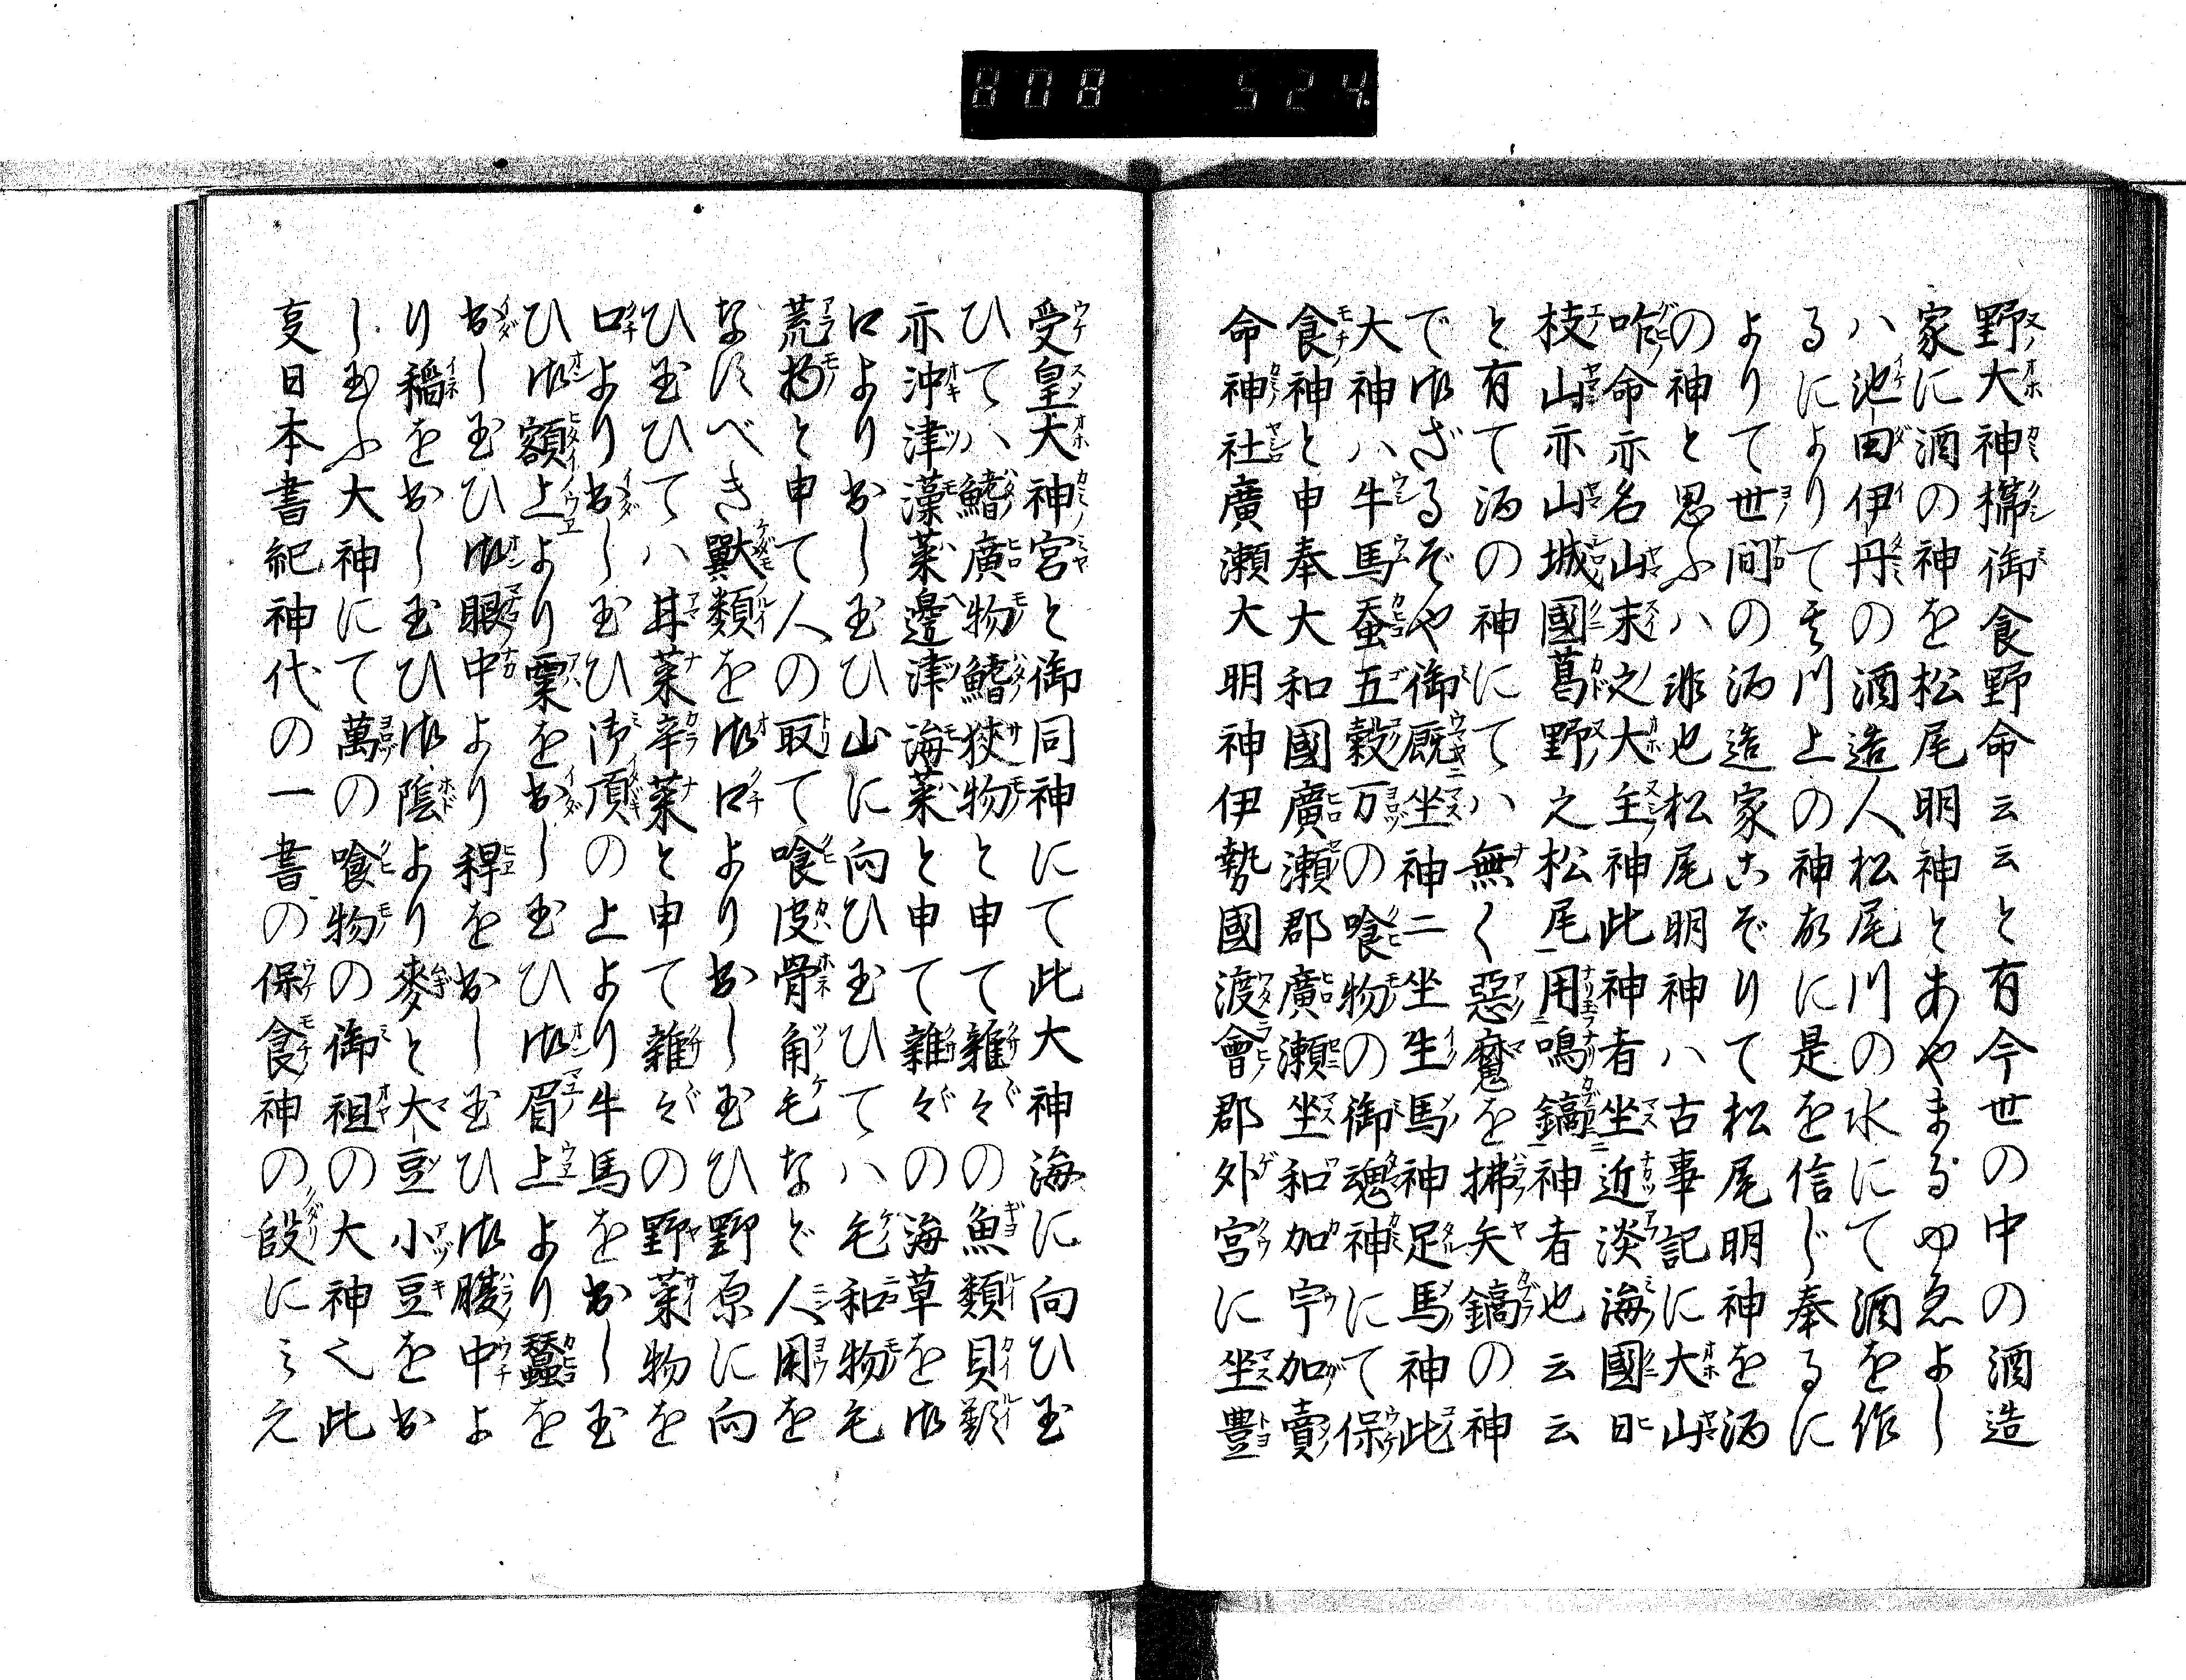 808 524.
野大神櫛御食野命云云と有今世の中の酒造
家に酒の神を松尾明神とあやまるゆゑよし
ハ池田伊丹の酒造人松尾川の水にて酒を作
るによりて其川上の神故に是を信じ奉るに
よりて世間の酒造家こぞりて松尾明神を酒
の神と思ふハ非也松尾明神ハ古事記に大山
咋命亦名山末之大主神此神者坐近淡海國日
枝山亦山城國葛野之松尾用鳴鏑神者也云云
と有て酒の神にてハ無く惡魔を拂矢鏑の神
で御ざるぞや御厩坐神二坐生馬神足馬神此
大神ハ牛馬蚕五穀万の喰物の御魂神にて保
食神と申奉大和國廣瀬郡廣瀬坐和加宇加賣
命神社廣瀬大明神伊勢國渡會郡外宮に坐豊
受皇大神宮と御同神にて此大神海に向ひ玉
ひてハ鰭廣物鰭狹物と申て雑々の魚類貝類
亦沖津藻菜邊津海菜と申て雑々の海草を御
口より出し玉ひ山に向ひ玉ひてハ毛和物毛
荒物と申て人の取て喰皮骨角毛など人用を
なすべき獸類を御口より出し玉ひ野原に向
ひ玉ひてハ甘菜辛菜と申て雑々の野菜物を
口より出し玉ひ御頂の上より牛馬を出し玉
ひ御額上より粟を出し玉ひ御眉上より蠶を
出し玉ひ御眼中より稗を出し玉ひ御腹中よ
り稲を出し玉ひ御陰より麥と大豆小豆を出
し玉ふ大神にて萬の喰物の御祖の大神也此
㕝日本書紀神代の一書の保食神の段にミえ